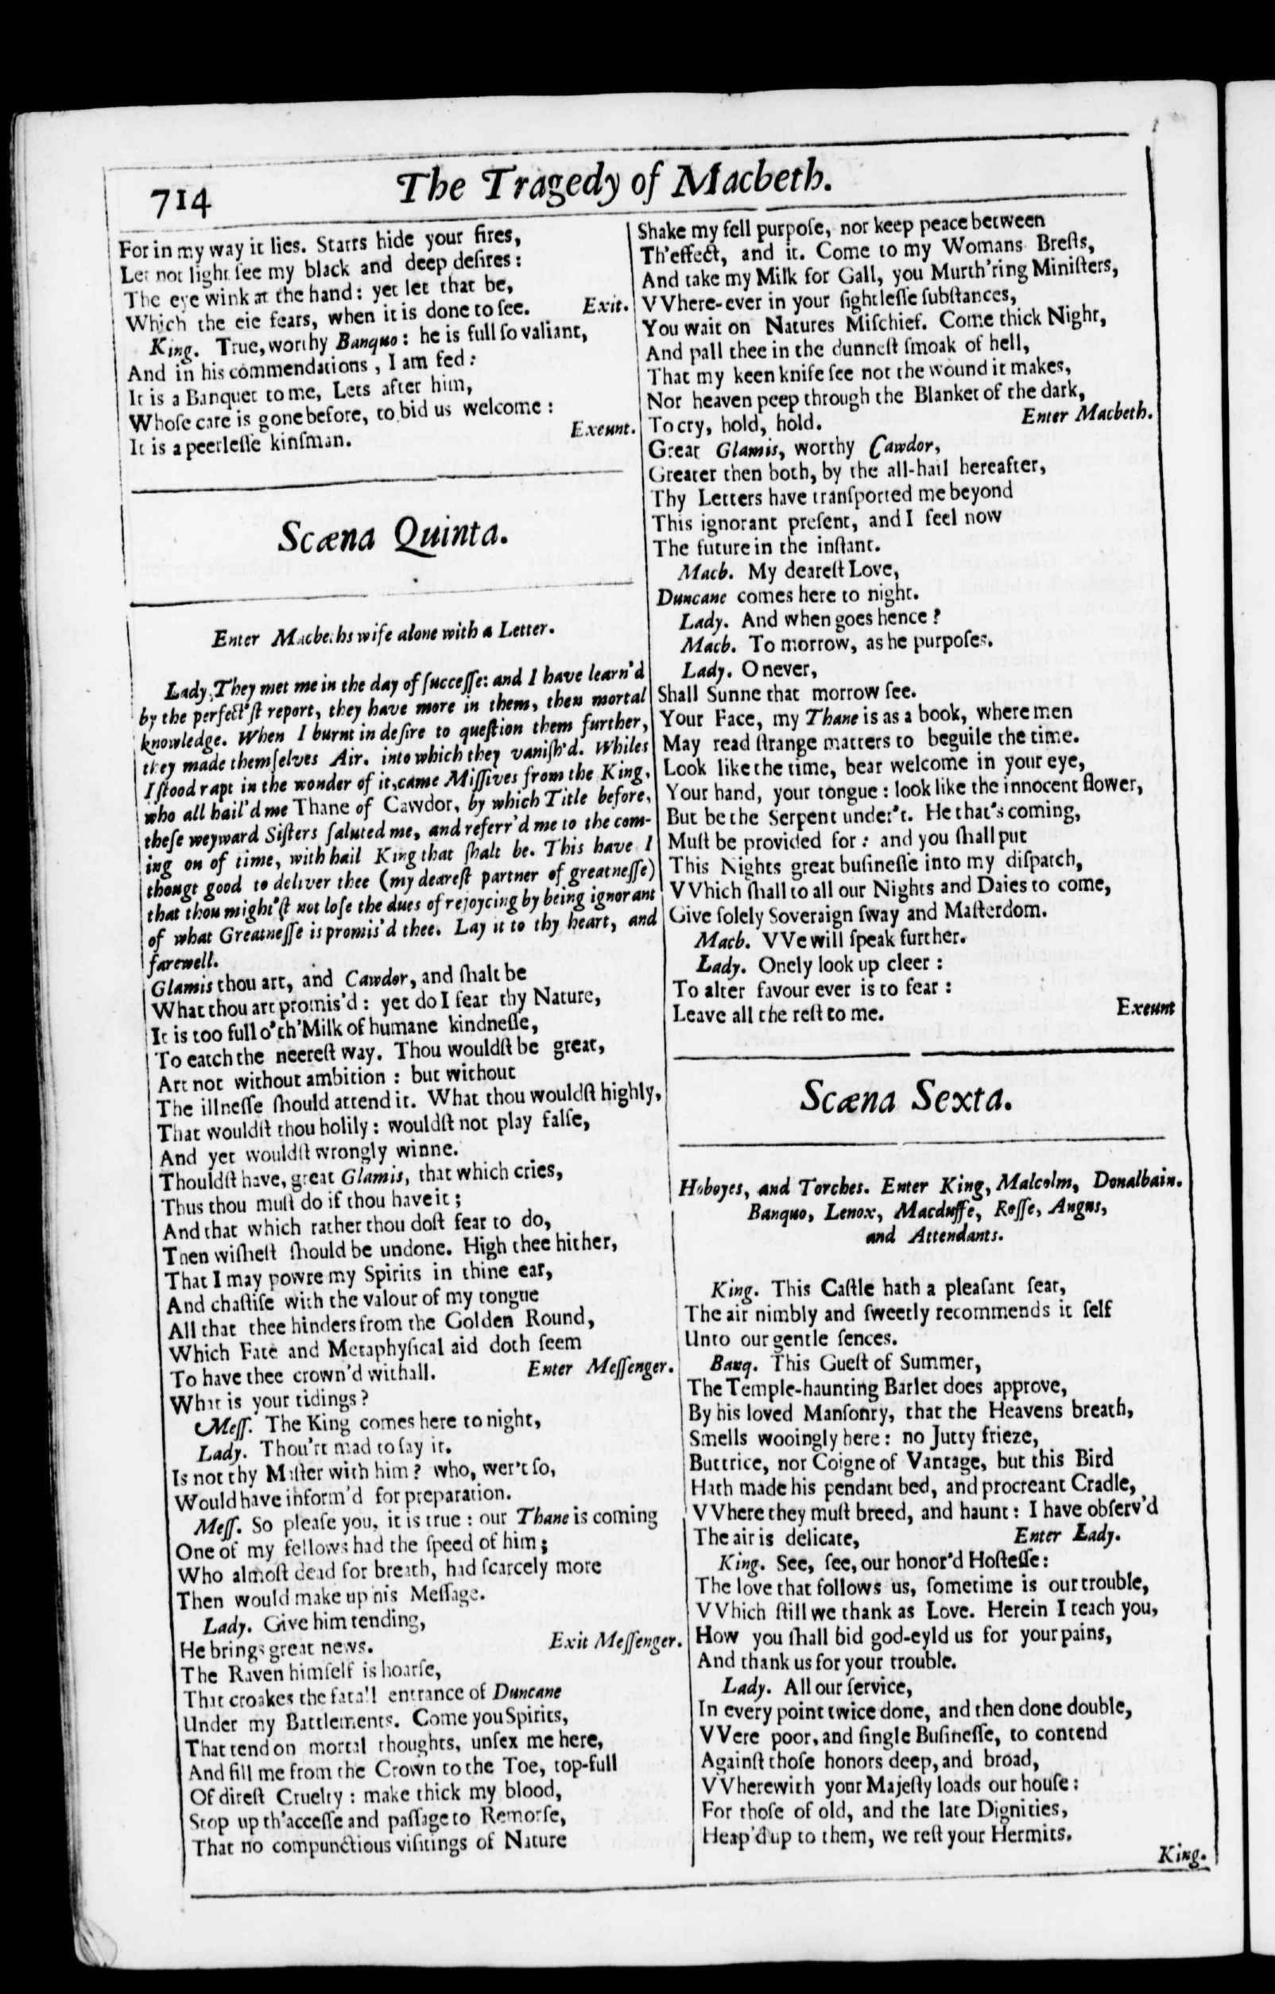 714
The Tragedy of Macbeth.
For in my way it lies. Starrs hide your fires,
Let not light ſee my black and deep deſires:
The eye wink at the hand: yet let that be,
Which the eie fears, when it is done to ſee. Exit.
King. True, worthy Banquo: he is full ſo valiant,
And in his commendations, I am fed:
It is a Banquet to me, Lets after him,
Whoſe care is gone before, to bid us welcome:
It is a peerleſſe kinſman. Exeunt.
Scæna Quinta.
Enter Macbeths wife alone with a Letter.
Lady. They met me in the day of ſucceſſe: and I have learn'd
by the perfect'ſt report, they have more in them, then mortal
knowledge. When I burnt in deſire to queſtion them further,
they made themſelves Air. into which they vaniſh'd. Whiles
I ſtood rapt in the wonder of it, came Miſſives from the King,
who all hail'd me Thane of Cawdor, by which Title before,
theſe weyward Siſters ſaluted me, and referr'd me to the com-
ing on of time, with hail King that ſhalt be. This have I
thougt good to deliver thee (my deareſt partner of greatneſſe)
that thou might'ſt not loſe the dues of rejoycing by being ignorant
of what Greatneſſe is promis'd thee. Lay it to thy heart, and
farewell.
Glamis thou art, and Cawdor, and ſhalt be
What thou art promis'd: yet do I fear thy Nature,
It is too full o'th'Milk of humane kindneſſe,
To eatch the neereſt way. Thou wouldſt be great,
Art not without ambition: but without
The illneſſe ſhould attend it. What thou wouldſt highly,
That wouldſt thou holily: wouldſt not play falſe,
And yet wouldſt wrongly winne.
Thouldſt have, great Glamis, that which cries,
Thus thou muſt do if thou have it;
And that which rather thou doſt fear to do,
Then wiſheſt ſhould be undone. High thee hither,
That I may powre my Spirits in thine ear,
And chaſtiſe with the valour of my tongue
All that thee hinders from the Golden Round,
Which Fate and Metaphyſical aid doth ſeem
To have thee crown'd withall. Enter Meſſenger.
What is your tidings?
Meſſ. The King comes here to night,
Lady. Thou'rt mad to ſay it.
Is not thy Maſter with him? who, wer't ſo,
Would have inform'd for preparation.
Meſſ. So pleaſe you, it is true: our Thane is coming
One of my fellows had the ſpeed of him;
Who almoſt dead for breath, had ſcarcely more
Then would make up his Meſſage.
Lady. Give him tending,
He brings great news. Exit Meſſenger.
The Raven himſelf is hoarſe,
That croakes the fatall entrance of Duncane
Under my Battlements. Come you Spirits,
That tend on mortal thoughts, unſex me here,
And fill me from the Crown to the Toe, top-full
Of direſt Cruelty: make thick my blood,
Stop up th'acceſſe and paſſage to Remorſe,
That no compunctious viſitings of Nature
Shake my fell purpoſe, nor keep peace between
Th'effect, and it. Come to my Womans Breſts,
And take my Milk for Gall, you Murth'ring Miniſters,
VVhere-ever in your ſightleſſe ſubſtances,
You wait on Natures Miſchief. Come thick Night,
And pall thee in the dunneſt ſmoak of hell,
That my keen knife ſee not the wound it makes,
Nor heaven peep through the Blanket of the dark,
To cry, hold, hold. Enter Macbeth.
Great Glamis, worthy Cawdor,
Greater then both, by the all-hail hereafter,
Thy Letters have tranſported me beyond
This ignorant preſent, and I feel now
The future in the inſtant.
Macb. My deareſt Love,
Duncane comes here to night.
Lady. And when goes hence?
Macb. To morrow, as he purpoſes.
Lady. O never,
Shall Sunne that morrow ſee.
Your Face, my Thane is as a book, where men
May read ſtrange matters to beguile the time.
Look like the time, bear welcome in your eye,
Your hand, your tongue: look like the innocent flower,
But be the Serpent under't. He that's coming,
Muſt be provided for: and you ſhall put
This Nights great buſineſſe into my diſpatch,
VVhich ſhall to all our Nights and Daies to come,
Give ſolely Soveraign ſway and Maſterdom.
Macb. VVe will ſpeak further.
Lady. Onely look up cleer:
To alter favour ever is to fear:
Leave all the reſt to me. Exeunt
Scæna Sexta.
Hoboyes, and Torches. Enter King, Malcolm, Donalbain.
Banquo, Lenox, Macduffe, Roſſe, Angus,
and Attendants.
King. This Caſtle hath a pleaſant ſear,
The air nimbly and ſweetly recommends it ſelf
Unto our gentle ſences.
Banq. This Gueſt of Summer,
The Temple-haunting Barlet does approve,
By his loved Manſonry, that the Heavens breath,
Smells wooingly here: no Jutty frieze,
Buttrice, nor Coigne of Vantage, but this Bird
Hath made his pendant bed, and procreant Cradle,
VVhere they muſt breed, and haunt: I have obſerv'd
The air is delicate, Enter Lady.
King. See, ſee, our honor'd Hoſteſſe:
The love that follows us, ſometime is our trouble,
VVhich ſtill we thank as Love. Herein I teach you,
How you ſhall bid god-eyld us for your pains,
And thank us for your trouble.
Lady. All our ſervice,
In every point twice done, and then done double,
VVere poor, and ſingle Buſineſſe, to contend
Againſt thoſe honors deep, and broad,
VVherewith your Majeſty loads our houſe:
For thoſe of old, and the late Dignities,
Heap'd up to them, we reſt your Hermits.
King.